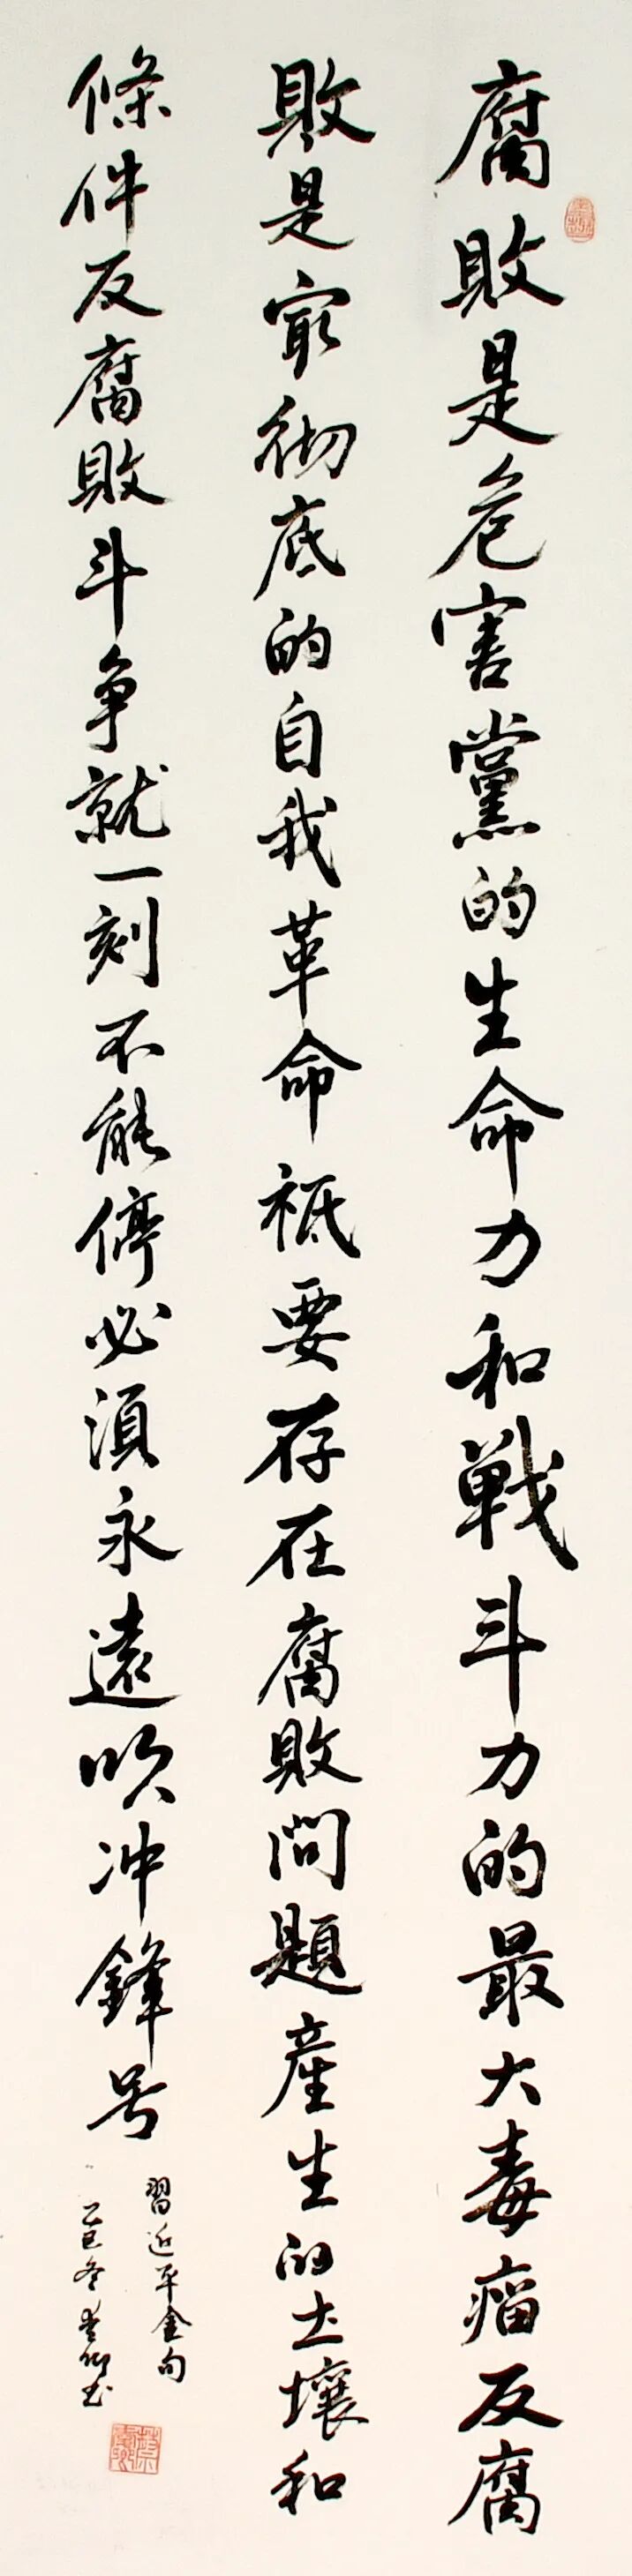 腐敗是危害黨的生命力和戦斗力的最大毒瘤反腐
敗是最彻底的自我革命祗要存在腐敗問題産生的土壤和
條件反腐敗斗争就一刻不能停必須永遠吹冲鋒号
習近平金句
乙巳冬